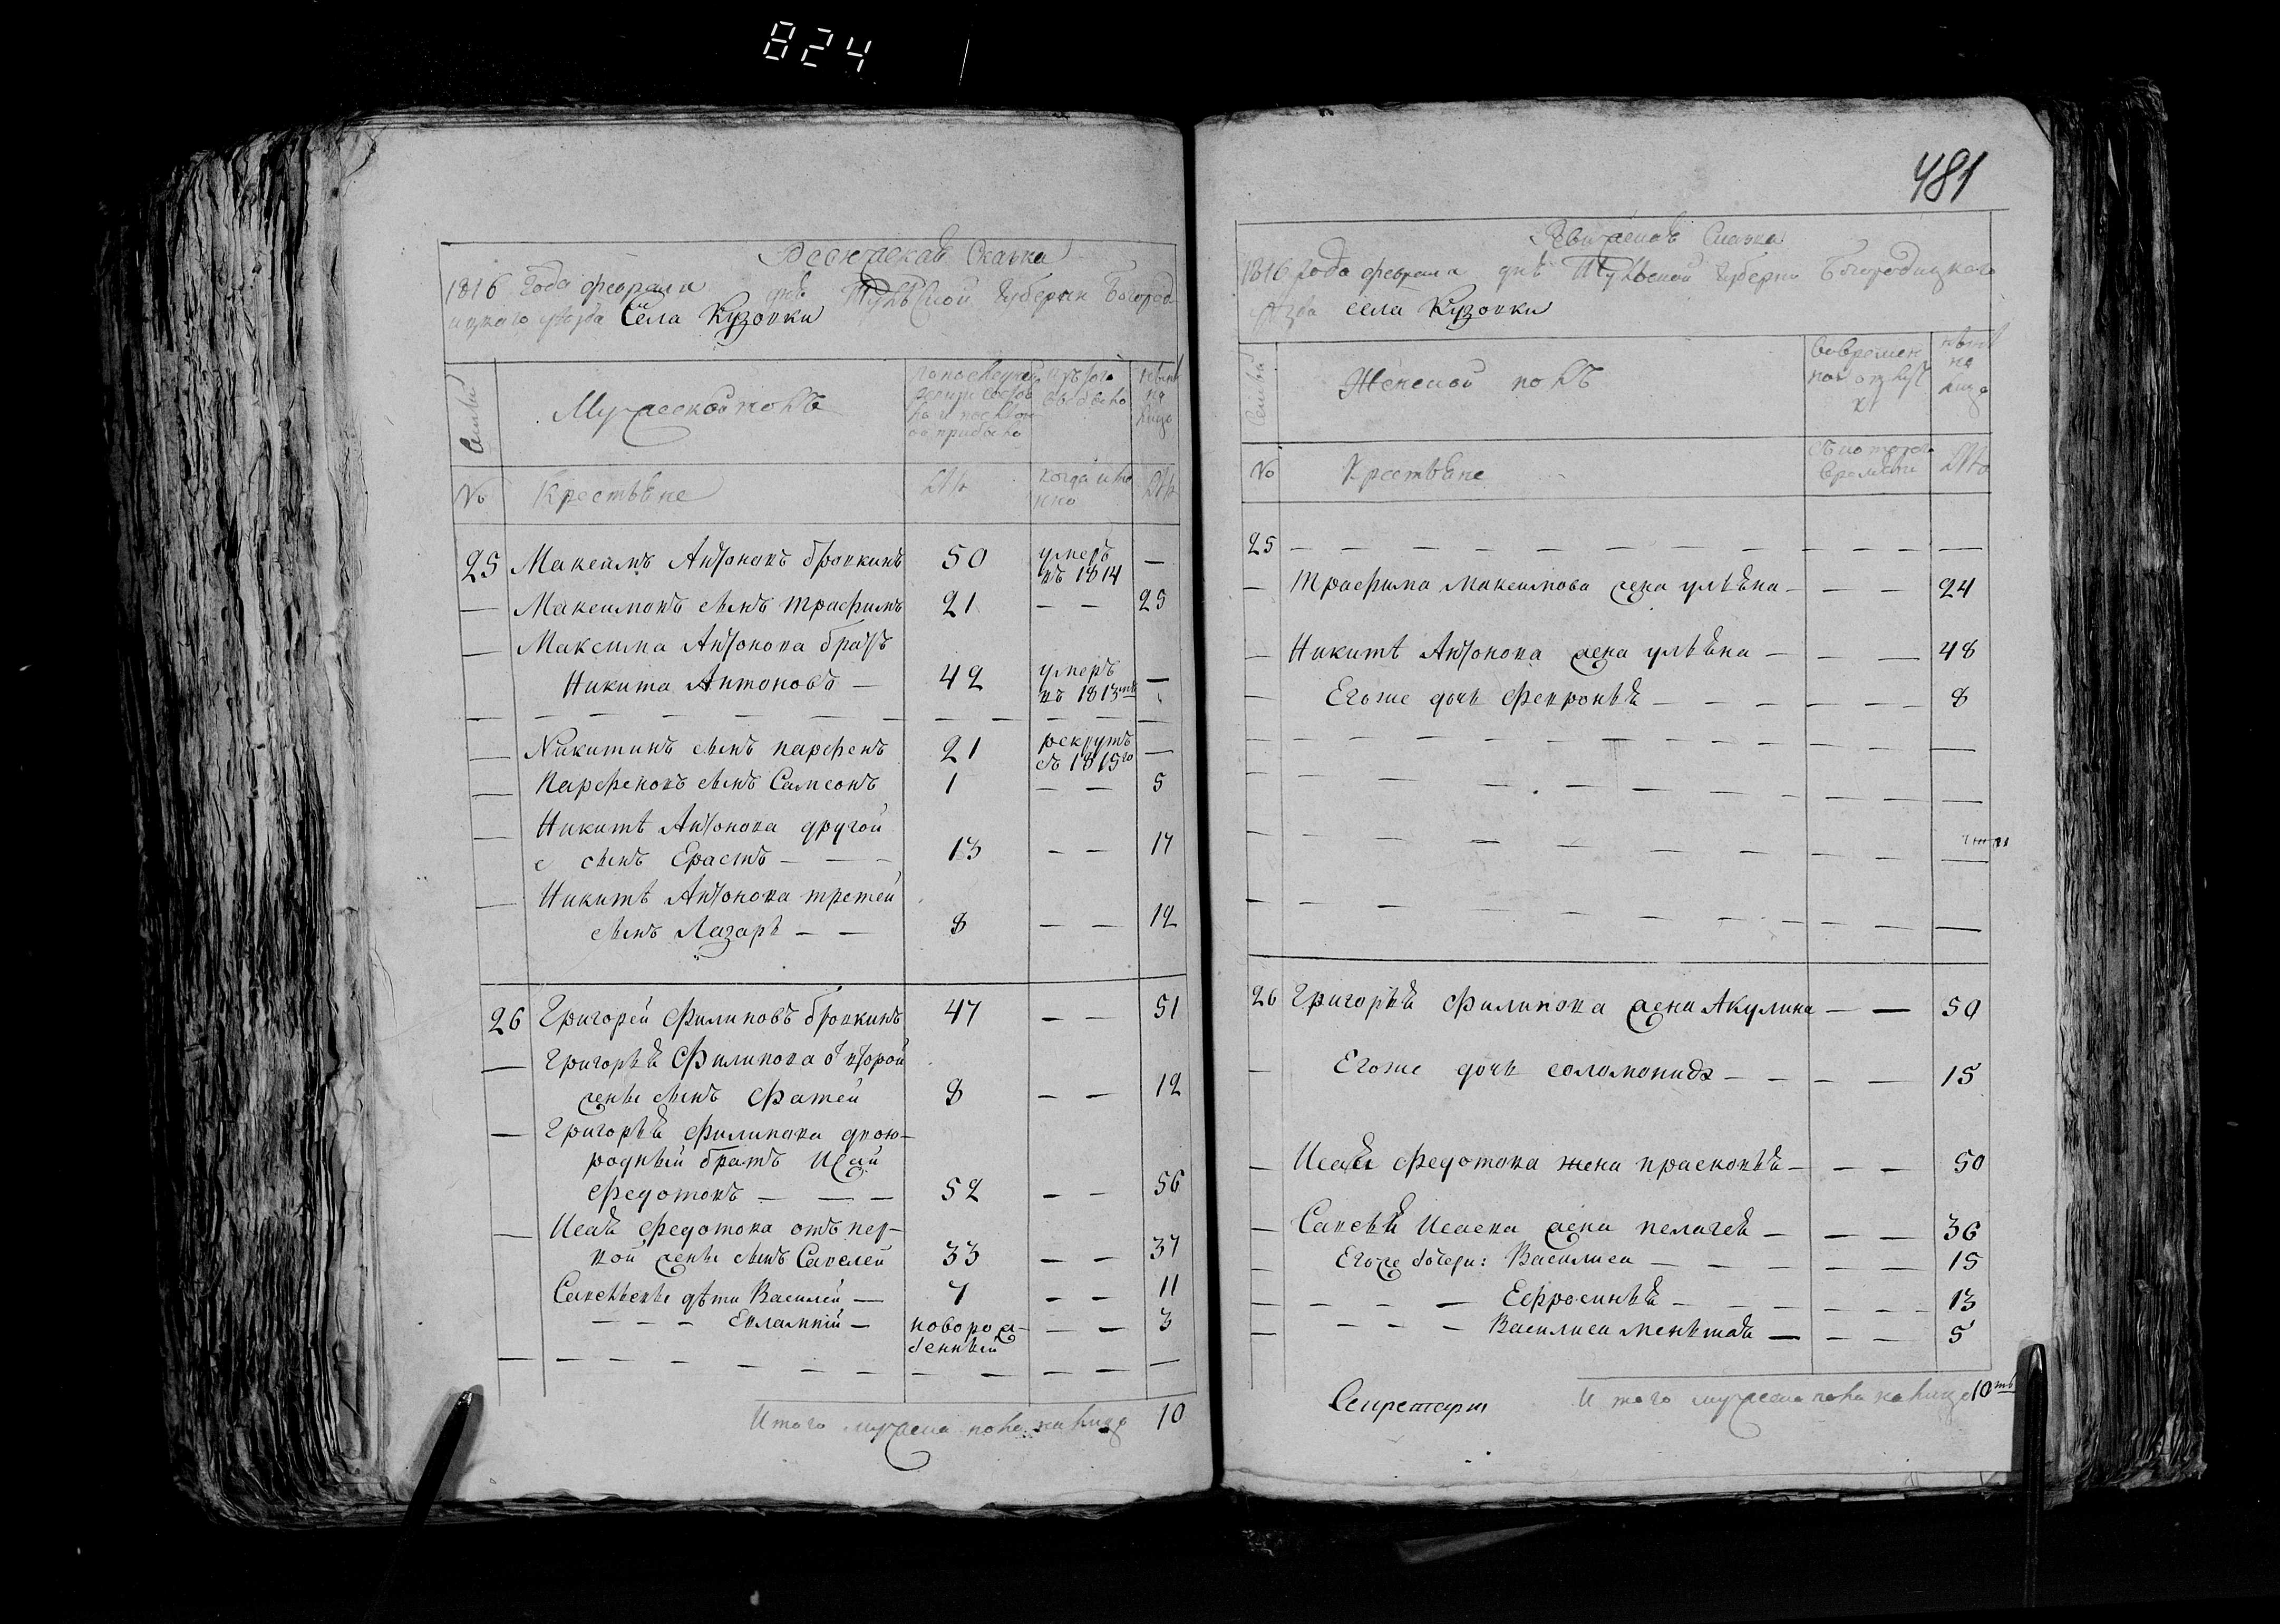 824
Ревижская Сказка
1816 года февраля дня Тульской Губерни Богород
ицкаго уезда Села Кузовки
Семьи
Мужеской полъ
Изъ того
выбыло
ныне
на
лицо
№
Крестьяне
Лѣта
когда имя
нно
Лѣта
25 Максимъ Антоновъ бровкинъ 50 умеръ въ 1814 —
— Максимовъ сынъ трафимъ 21 — — 25
— Максима Антонова братъ
Никита Антоновъ — 42 умеръ въ 1813мъ —
— Никитинъ сынъ парфенъ 21 рекрутъ съ 1815го —
— Парфеновъ сынъ Самсонъ 1 — — 5
— Никиты Антонова другой
сынъ Ерастъ — — — 13 — — 17
— Никиты Антонова третей
сынъ Лазарь — — 8 — — 12
26 Григорей Филиповъ бровкинъ 47 — — 51
— Григорья Филипова от второй
жены сынъ Фатей 8 — — 12
— Григорья Филипова двою-
родный братъ Исай
Федотовъ — — — 52 — — 56
— Исая Федотова отъ пер-
вой жены сынъ Савелей 33 — — 37
Савельевы дѣти Василей — 7 — — 11
— — — Евлампий — новорож-
денный — — 3
Итого мужеска пола на лицо 10
481
Ревижская Сказка
1816 года февраля дня Тульской Губерни Богородицкаго
уезда села Кузовки
Семьи
Женской полъ
ныне
на
лицо
№
Крестьяне
Лѣта
25 — — — — — — — — — — — —
— Трафима Максимова жена ульяна — — — 24
— Никиты Антонова жена ульяна — — — 48
— Егоже дочь Февронья — — — — — — 8
26 Григорья Филипова жена Акулина — — 50
— Егоже дочь соломонида — — — — 15
— Исая Федотова жена прасковья — — — 50
— Савелья Исаева жена пелагея — — — 36
— Егоже дочери: Василиса — — — — — 15
— — — — Ефросинья — — — — — — 13
— — — — Василиса меньшая — — — 5
Секретарь
Итого мужеска пола на лицо 10ть